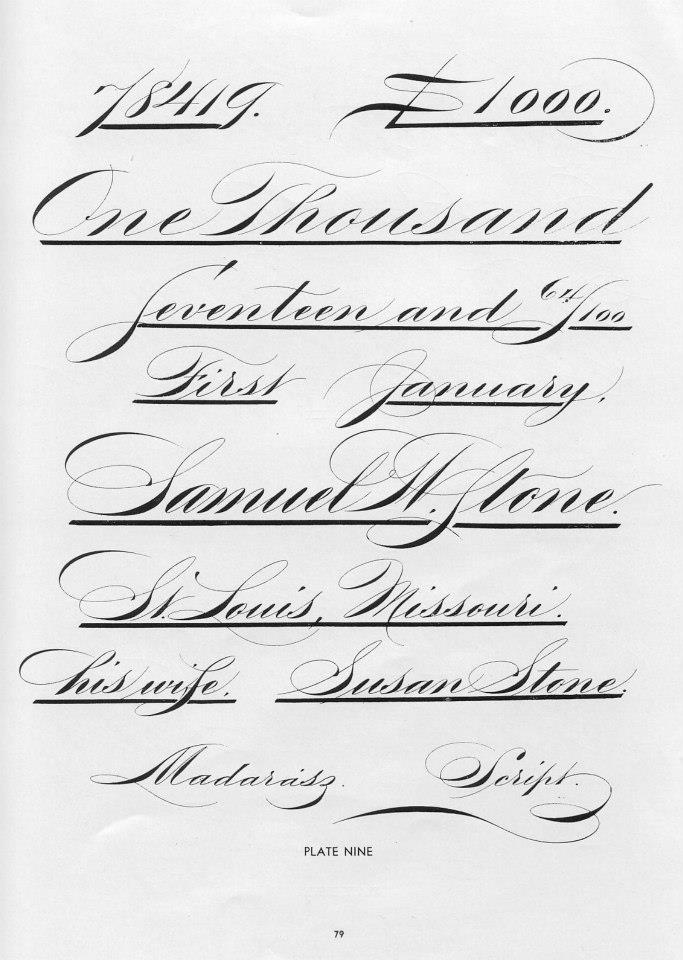 78419. $1000.
One Thousand
Seventeen and
First January,
Samuel H. Stone.
St. Louis, Missouri.
his wife. Susan Stone.
Madarász. Script.
PLATE NINE
79